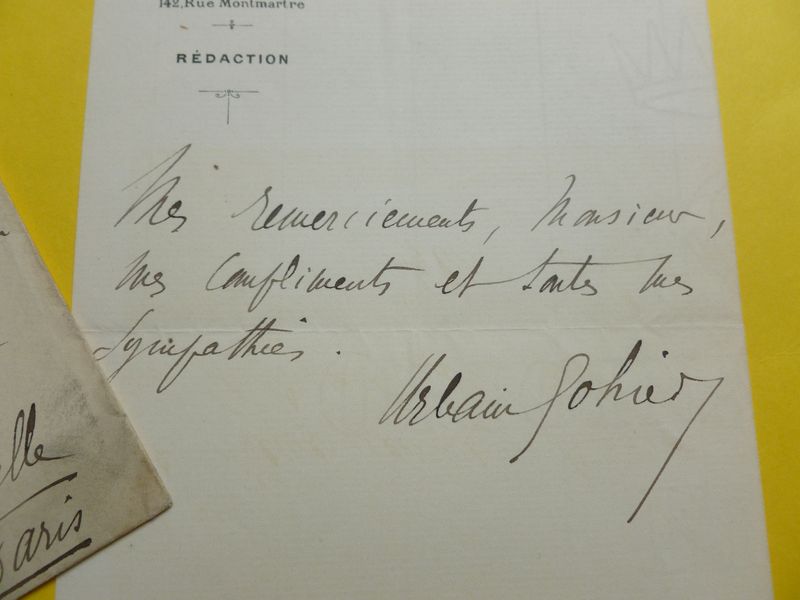 142, Rue Montmartre
RÉDACTION
Mes remerciements, Monsieur,
mes compliments et toutes mes
sympathies.
Urbain Gohier
lle
Paris